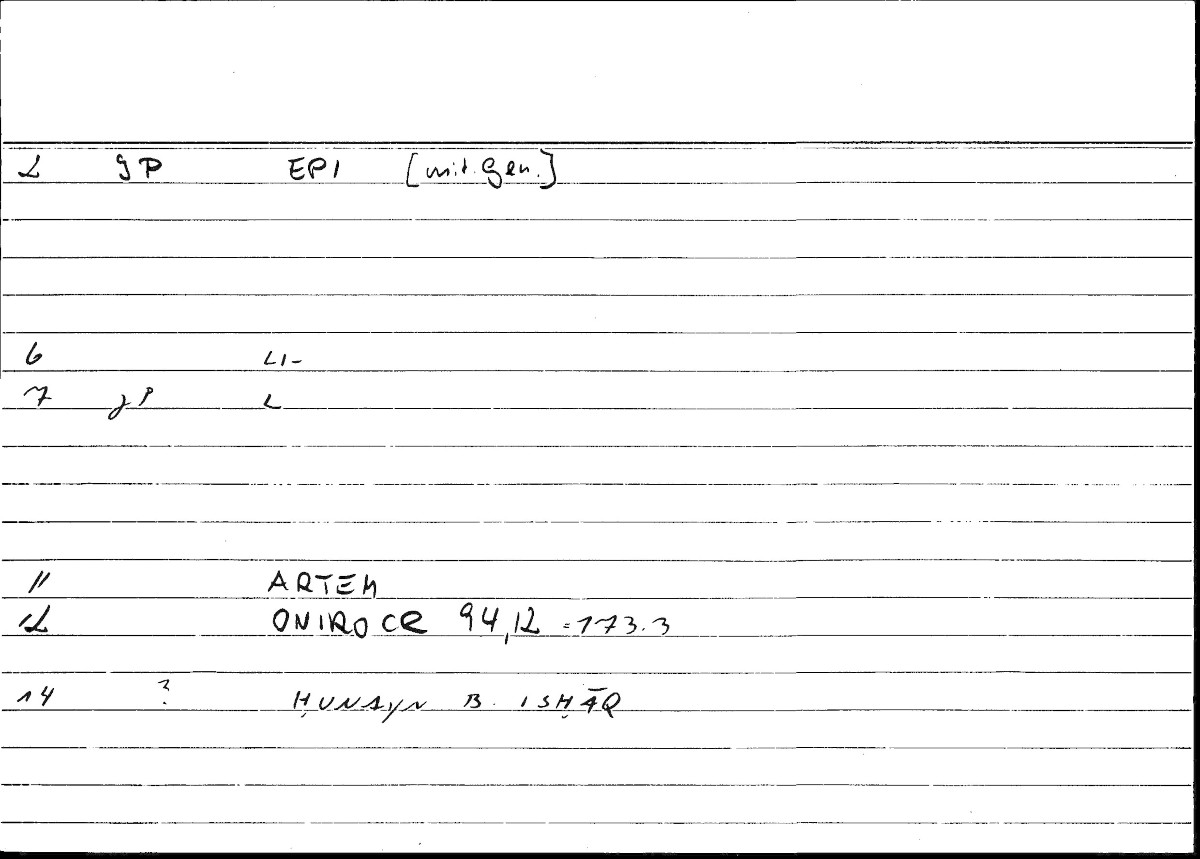 2 gP EPI [mit. Gen.]
6 LI-
7 gP L
11 ARTEM
12 ONIROCR 94,12 =173.3
14 ? ḤUNAYN B. ISḤĀQ